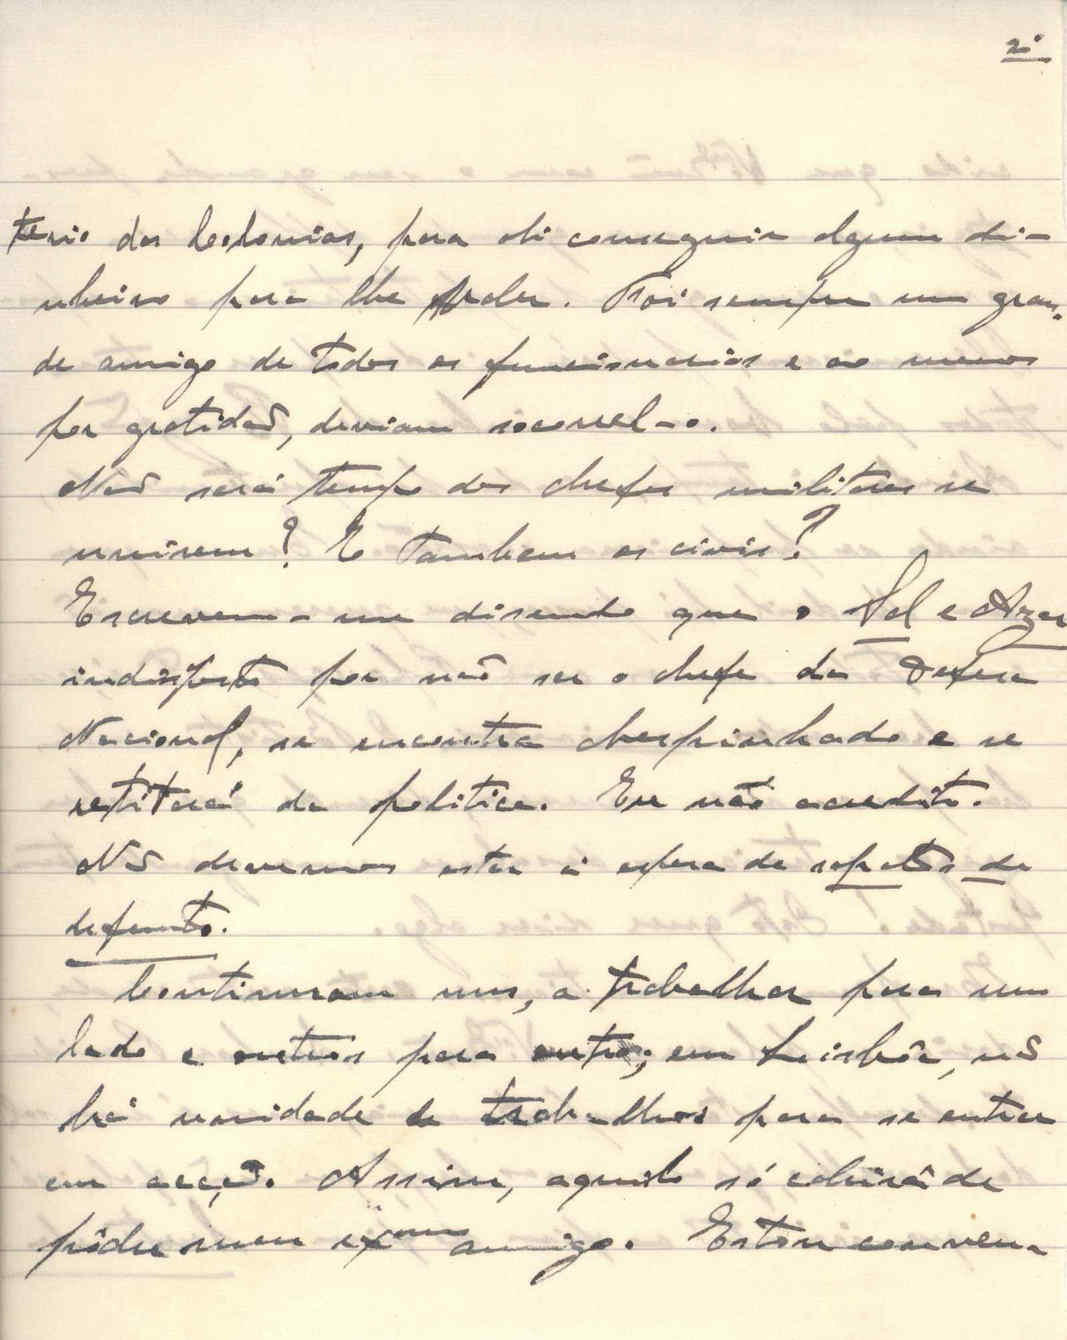 2º
terio das Colonias, para ali conseguir algum di-
nheiro para lhe valer. Foi sempre um gran-
de amigo de todos os funcionarios e ao menos
por gratidão, deviam socorrel-o.
Não será tempo dos chefes militares se
unirem? E tambem os civis?
Escrevem-me disendo que o Sol e
indisposto por não ser o chefe da Defesa
Nacional, se encontra abespinhado e se
retirará da politica. Eu não acredito.
Nós devemos estar á espera de sapatos de
defunto.
Continuam uns, a trabalhar para um
lado e outros para outro; em Lisbôa, não
há unidade de trabalhos para se entrar
em acção. Assim, aquilo só cahirá de
pôdre meu exmo amigo. Estou conven-